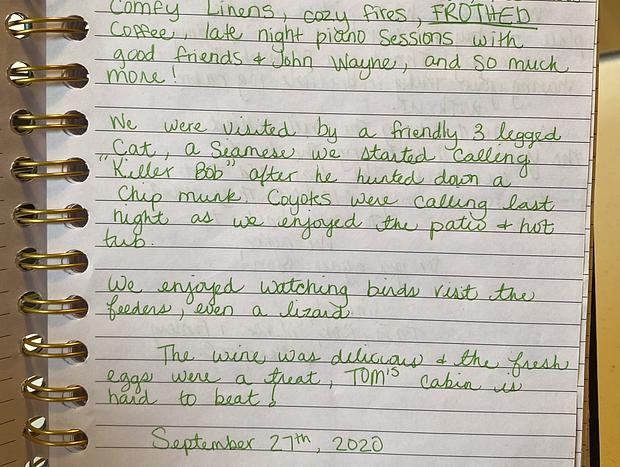 Comfy Linens, cozy fires, FROTHED
Coffee, late night piano sessions with
good friends & John Wayne, and so much
more!
We were visited by a friendly 3 legged
Cat, a Seamese we started calling
"Killer Bob" after he hunted down a
Chip munk. Coyotes were calling last
night as we enjoyed the patio & hot
tub.
We enjoyed watching birds visit the
feeders, even a lizard.
The wine was delicious & the fresh
eggs were a treat, TOM'S cabin is
hard to beat!
September 27th, 2020